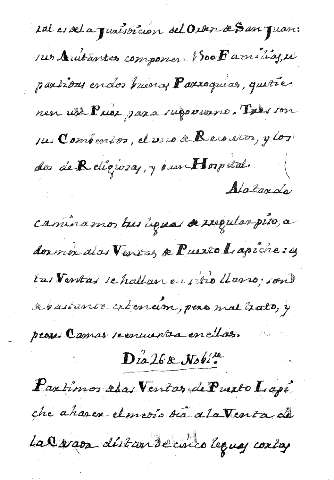 tal es de la Jurisdicion del Orden de San Juan:
sus Avitantes componen 1500 Familias, re
partidas en dos buenas Parroquias, que tie
nen un Prior para su govierno. Tres son
sus Combentos, el uno de Recoletos, y los
dos de Religiosas, y un Hospital.
A la tarde
caminamos tres leguas de regular piso, a
dormir a las Ventas de Puerto Lapiche: es
tas Ventas se hallan en sitio llano; son
de vastante extencion, pero mal trato, y
peores Camas se encuentra en ellas.
Dia 26 de Nobi.re
Partimos de las Ventas de Puerto Lapi
che a hacer el medio dia a la Venta de
la distan de cinco leguas cortas